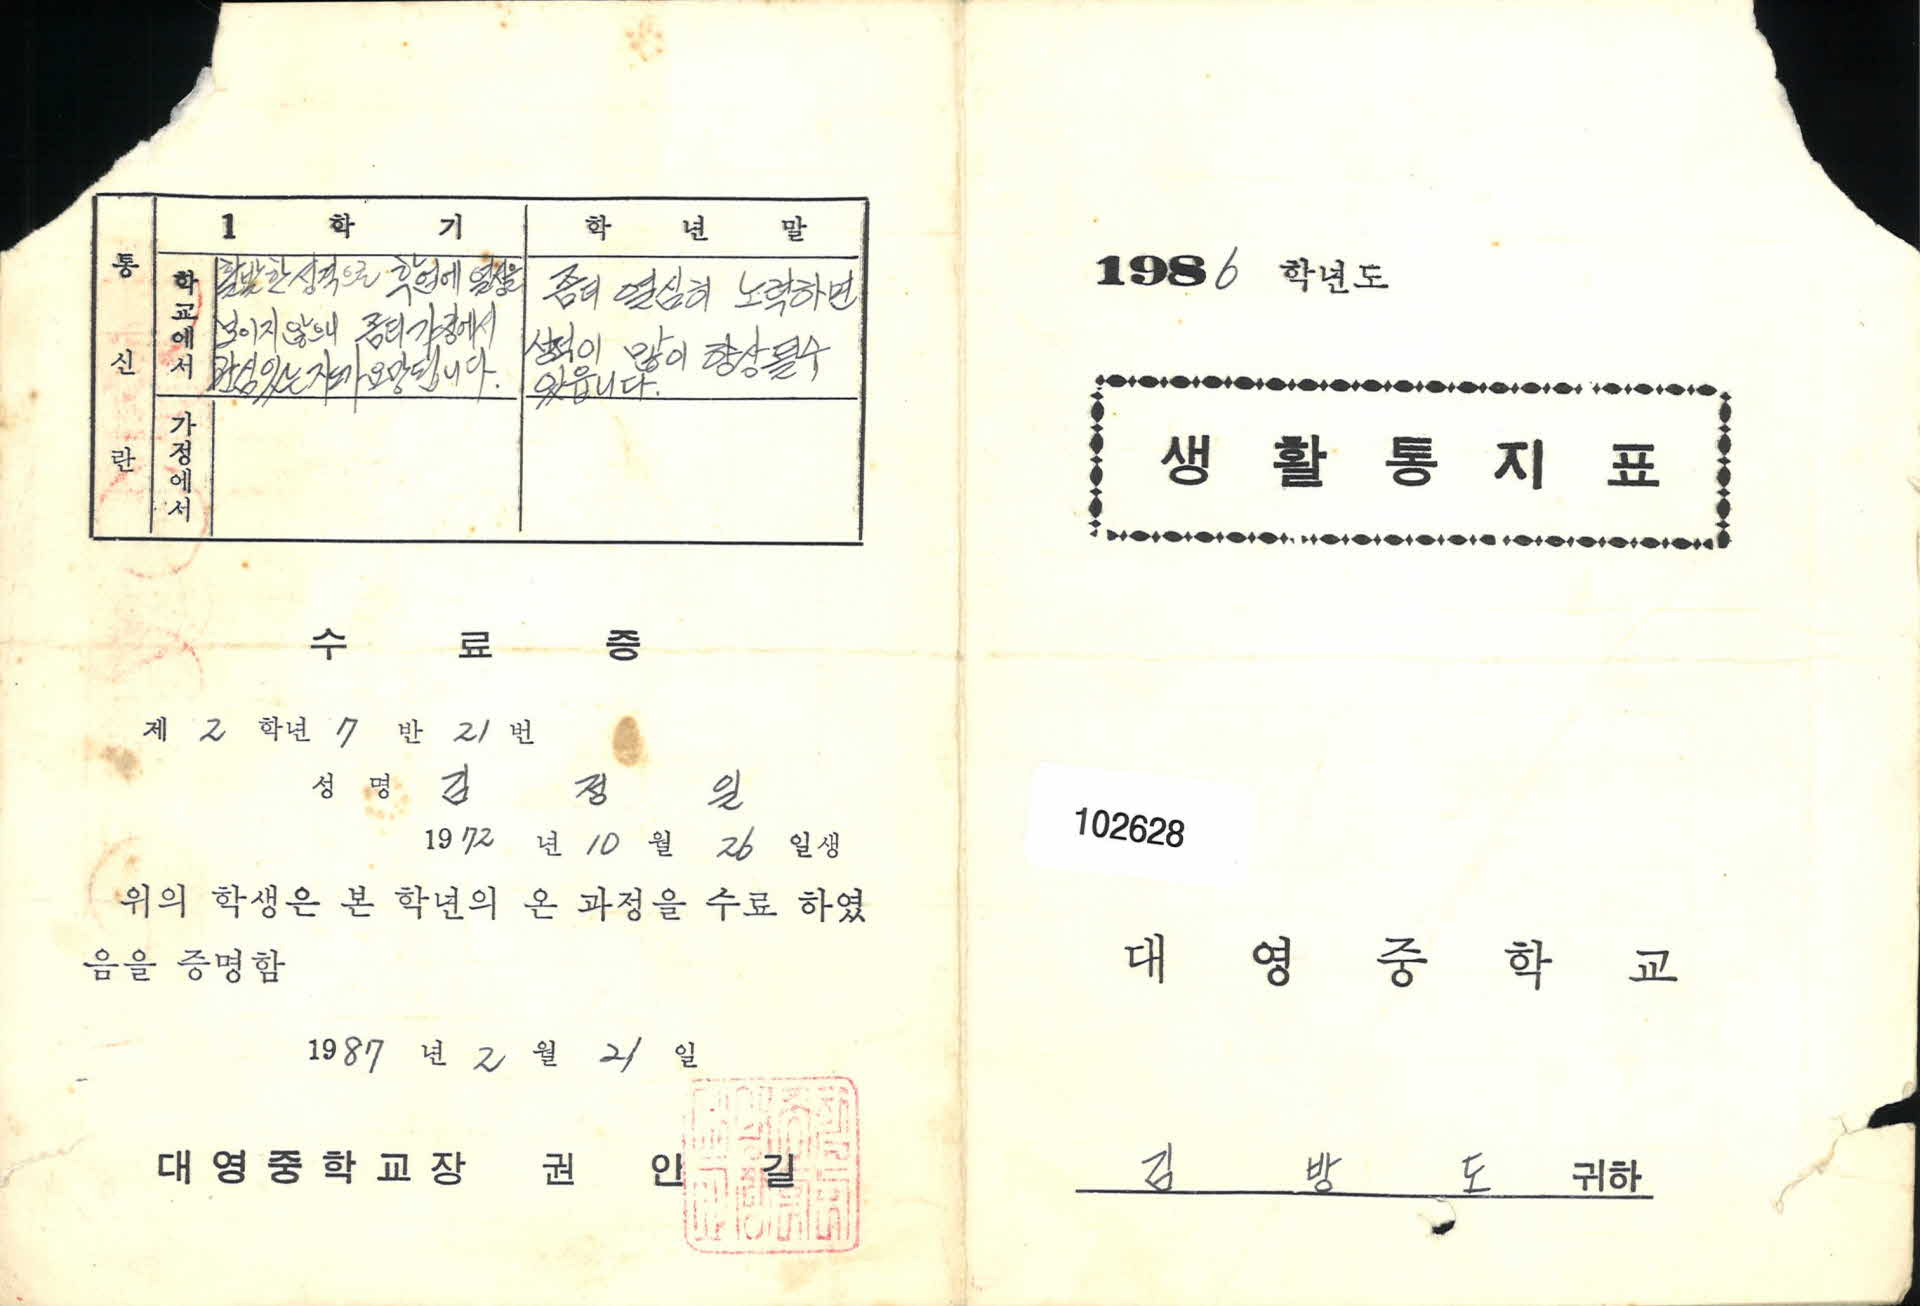 통신란
1 학기
학년말
학교에서
활발한 성격으로 학업에 열성을
보이지 않으니 좀더 가정에서
관심있는 지도가 요망됩니다.
좀더 열심히 노력하면
성적이 많이 향상될수
있읍니다.
가정에서
수 료 증
제 2 학년 7 반 21 번
성 명 김 정 일
1972 년 10 월 26 일생
위의 학생은 본 학년의 온 과정을 수료 하였
음을 증명함
1987 년 2 월 21 일
대영중학교장 권 안 길
1986 학년도
생활통지표
102628
대 영 중 학 교
김 방 도 귀하